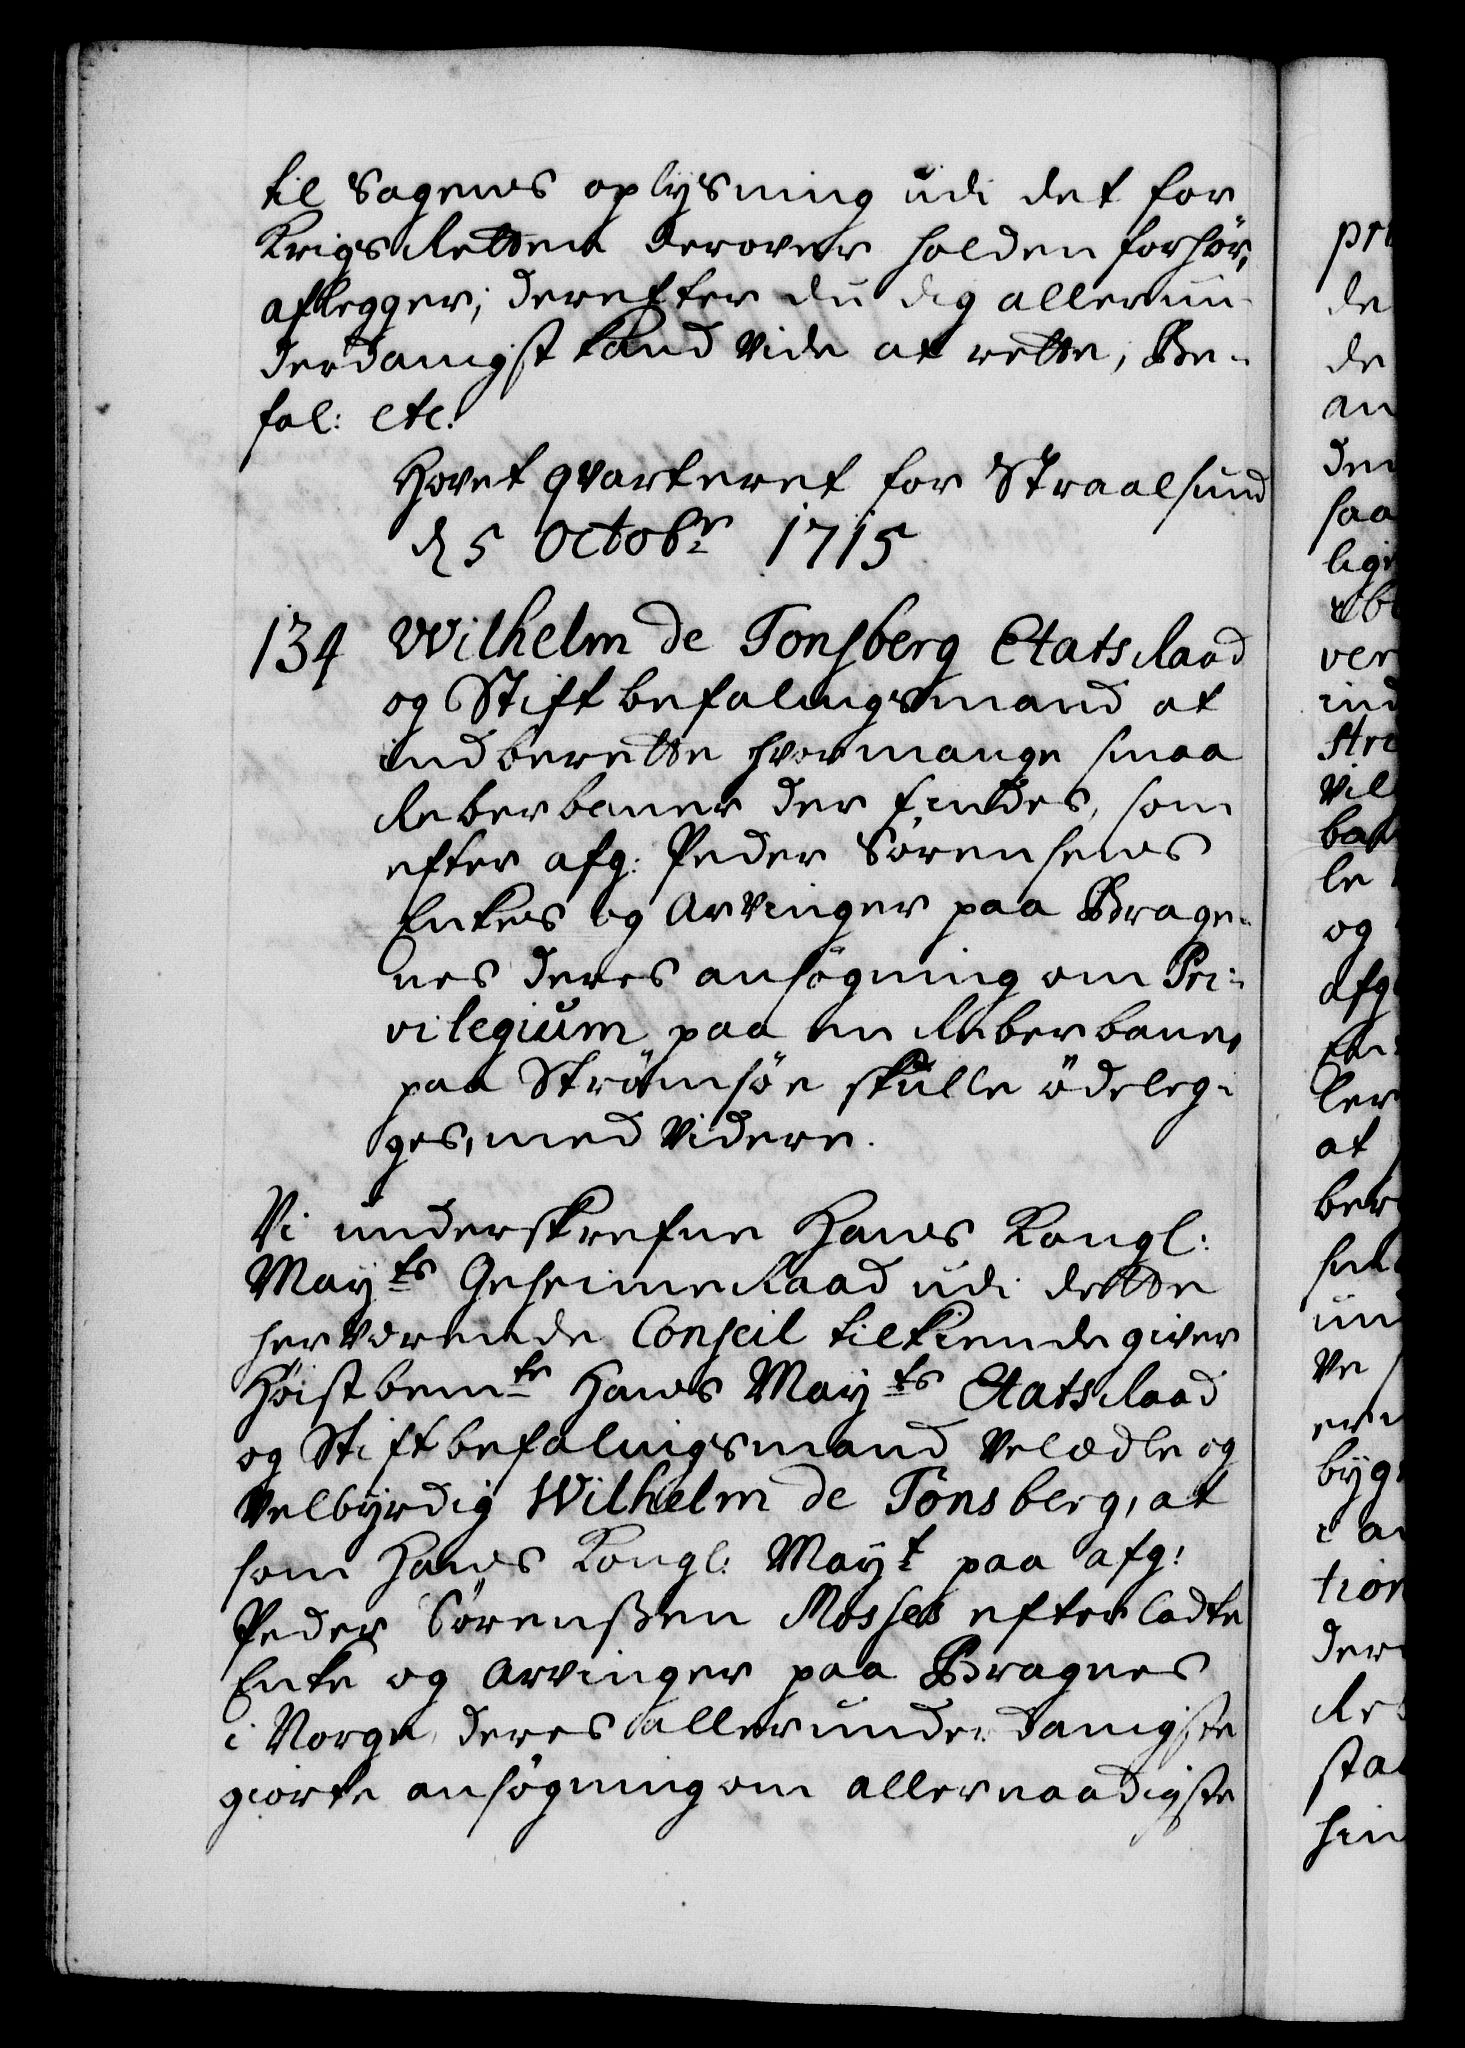 til Sagens oplysning udi det for
Krigs Retten derover holden forhör,
aflegger; derefter du dig allerun-
derdanigst kand vide at rette, Be-
fal: etc.
Hovet qvarteret for Straalsund
d 5 Octobr 1715
134 Wilhelm de Tonsberg Etats Raad
og Stiftbefalingsmand at
indberette hvormange smaa
Reberbaner der findes, som
efter afg: Peder Sörensens
Enkes og Arvinger paa Brage-
nes deres ansögning om Pri-
vilegium paa en Reberbane
paa Strömsöe skulle ödeleg-
ges, med Videre.
Vi underskrefne Hans Kongl:
Mayts Geheime Raad udi dette
herværende Conseil tilkiende giver
Höistbemte Hans Mayts Etats Raad
og Stiftbefalingsmand Velædle og
Velbyrdig Wilhelm de Tönsberg, at
som Hans Kongl: Mayt paa afg:
Peder Sörenßen Mosses efterladte
Enke og Arvinger paa Bragnes
i Norge deres allerunderdanigste
giorte ansögning om allernaadigste
pr
de
de
an
den
saa
ver
ind
Str
Vil
le
og
afg
ler
at
ber
Ve
byg
tion
der
sta